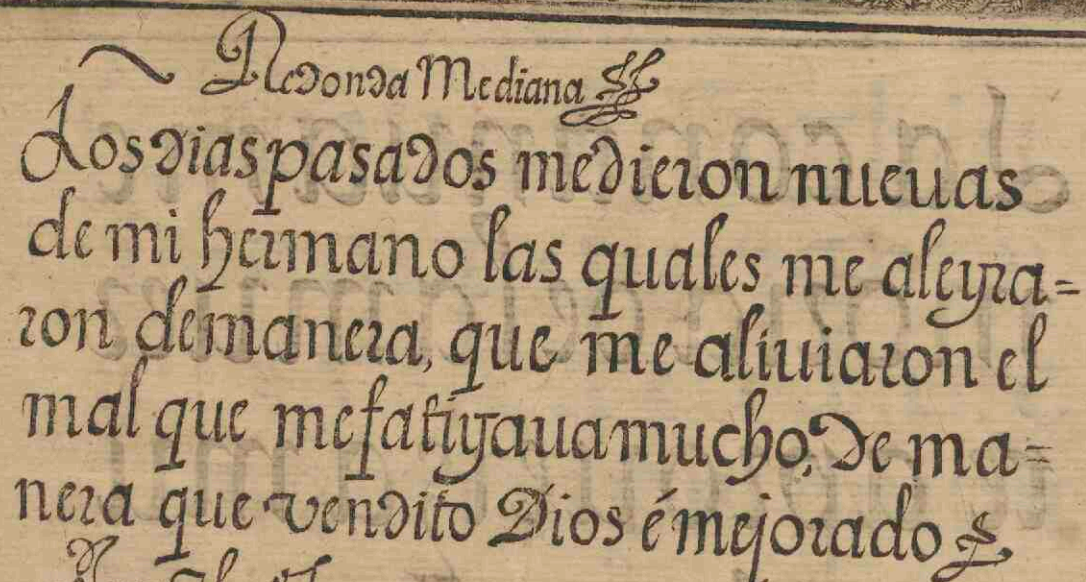 Redonda Mediana
Los dias pasados me dieron nueuas
de mi hermano las quales me alegra=
ron de manera, que me aliuiaron el
mal que me fatigaua mucho, De ma=
nera que vendito Dios é mejorado